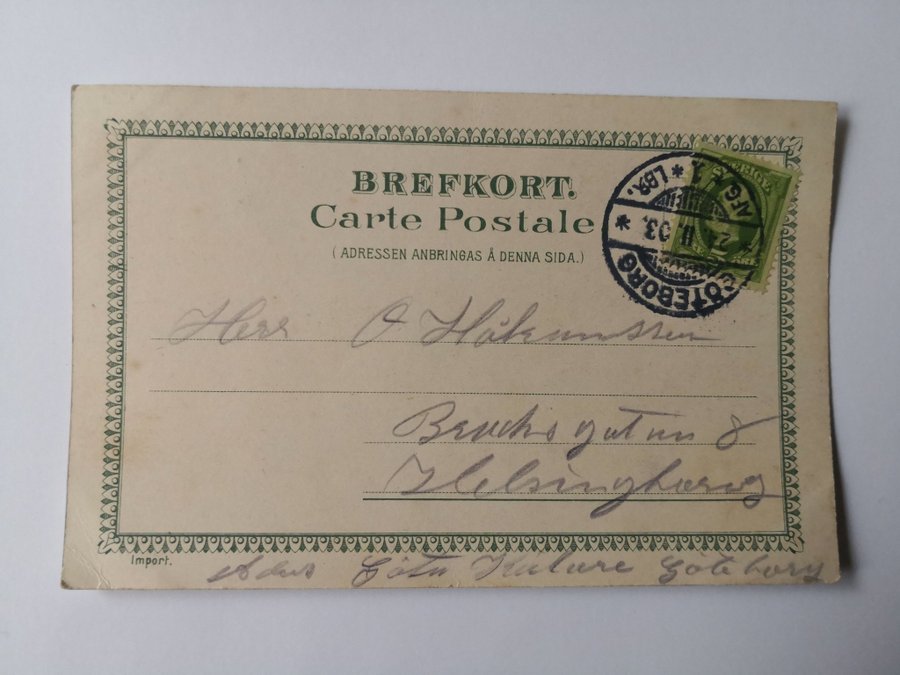 BREFKORT.
Carte Postale
(ADRESSEN ANBRINGAS Å DENNA SIDA.)
GÖTEBORG
LBR.
Herr O Håkansson
Bruksgatan 8
Helsingborg
Import.
Adrs Göta Göteborg